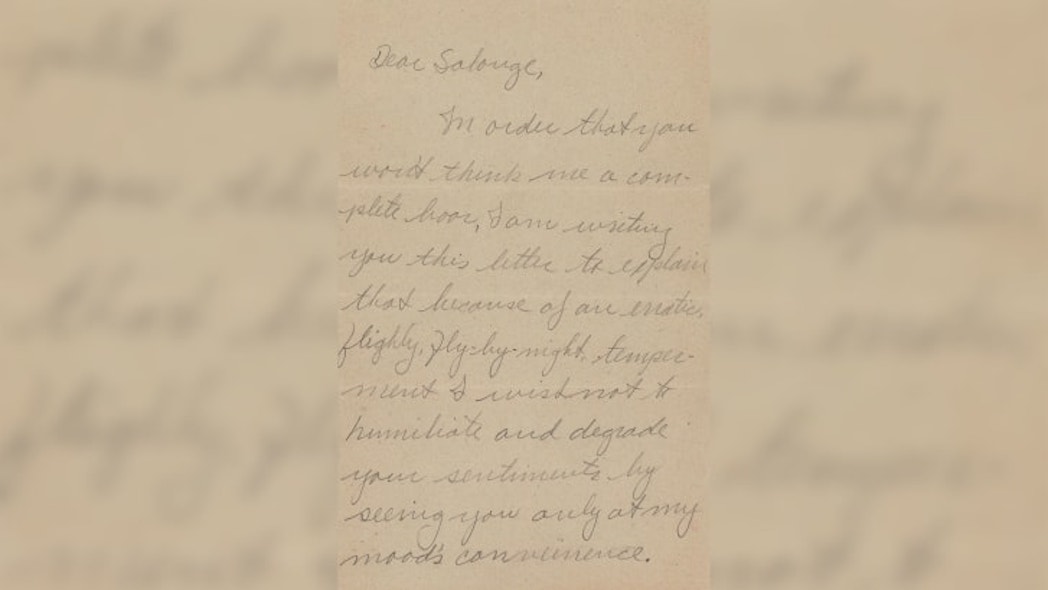 Dear Solange,
In order that you
won't think me a com-
plete boor, I am writing
you this letter to explain
that because of an erratic,
flighty, fly-by-night, temper-
ment I wish not to
humiliate and degrade
your sentiments by
seeing you only at my
mood's conveinence.